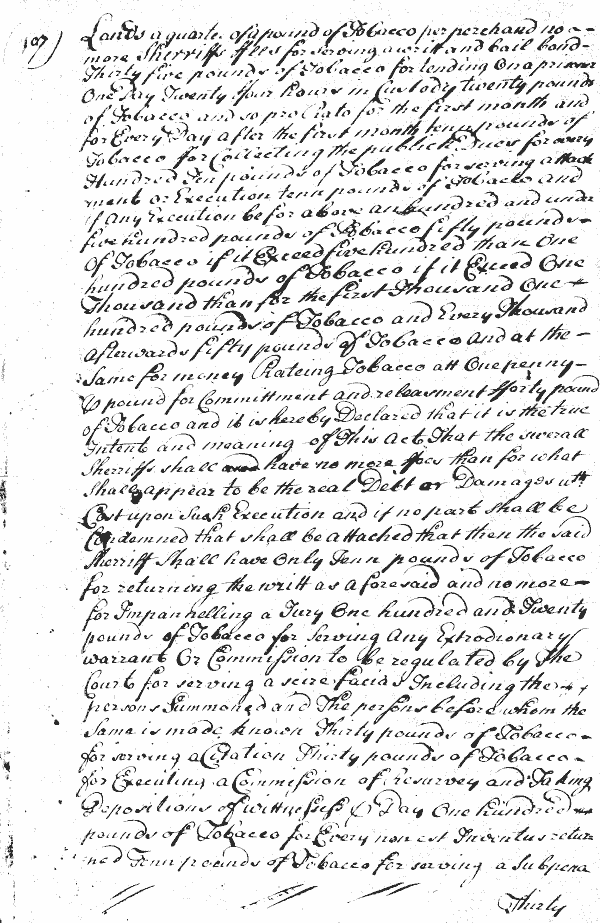 107)
Lands a quarter of a pound of Tobacco per perch and no
more Sherriffs ffees for serving a writt and bail bond
Thirty five pounds of Tobacco for tending on a prisoner
One Day Twenty ffour hours in Custody twenty pounds
of Tobacco and so pro Rato for the first month and
for Every Day after the first month tenn pounds of
Tobacco for Collecting the publick Dues for every
Hundred Ten pounds of Tobacco for serving attach
ment or Execution tenn pounds of Tobacco and
if any Execution be for above an hundred and under
five hundred pounds of Tobacco fifty pounds
Of Tobacco if it Exceed five hundred than One
hundred pounds of Tobacco if it Exceed One
Thousand than for the first Thousand One
hundred pounds of Tobacco and Every Thousand
afterwards fifty pounds of Tobacco and at the
same for money Rateing Tobacco att One penny
pound for Committment and releasment fforty pound
of Tobacco and it is hereby Declared that it is the true
Intent and meaning of This Act That the severall
Sherriffs shall have no more ffees than for what
Shall appear to be the real Debt or Damages wth
Cost upon Such Execution and if no part shall be
Condemned that shall be attached that then the said
Sherriff Shall have Only Tenn pounds of Tobacco
for returning the writt as aforesaid and no more
for Impannelling a Jury One hundred and Twenty
pounds of Tobacco for Serving Any Extrodionary
warrant Or Commission to be regulated by the
Court for serving a scire facias Including the
persons Summoned and The persons before whom the
Same is made known Thirty pounds of Tobacco
for serving a Citation Thirty pounds of Tobacco
for Executing a Commission of resurvey and Taking
Depositions of wittnesses Day One hundred
pounds of Tobacco for Every non est Inventus retur
ned Tenn pounds of Tobacco for serving a Subpena
Thirty